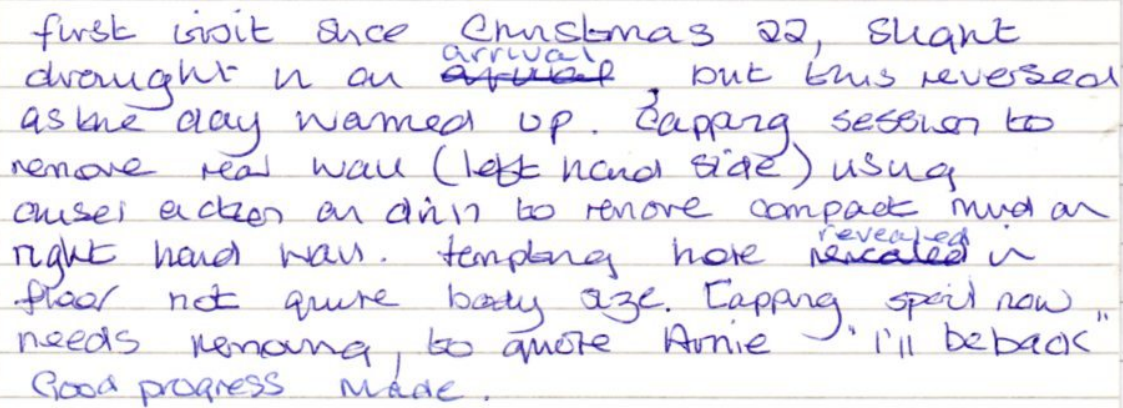 first visit since Christmas 22, slight
draught in on arrival, but this reversed
as the day warmed up. Capping session to
remove rear wall (left hand side) using
chisel action on drill to remove compact mud on
right hand wall. tempting hole revealed in
floor not quite body size. Capping spoil now
needs removing, to quote Arnie "I'll be back"
Good progress made.